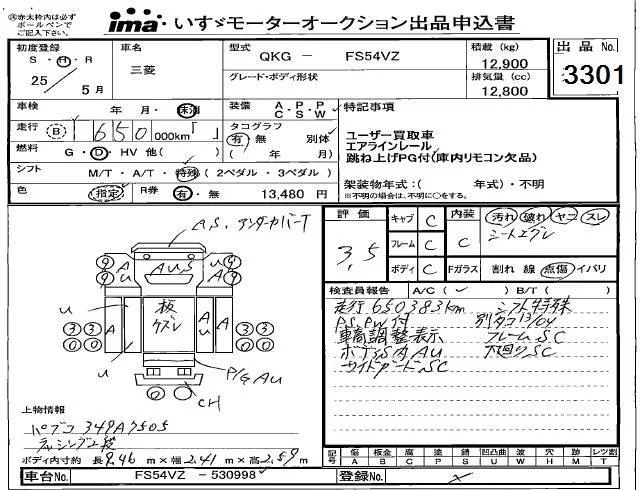 ※赤太枠内は必ず
ボールペンで
ご記入下さい。
ima いすゞモーターオークション出品申込書
初度登録
S・H・R
25/ 5月
車名
三菱
型式
QKG － FS54VZ
グレード・ボディ形状
積載 (kg)
12,900
排気量 (cc)
12,800
出品 No.
3301
車検 年 月・抹消
装備 A・P・P
C S W
特記事項
走行 B 1 650 000km「 」
タコグラフ
有・無 別体
( )
燃料 G・D・HV 他( )
ユーザー買取車
エアラインレール
跳ね上げPG付(庫内リモコン欠品)
シフト M/T・A/T・特殊(2ペダル・3ペダル)
色 (指定) R券 有・無 13,480 円
架装物年式:( 年式)・不明
※不明の場合は、不明に○をする。
A.S. アンダーカバーT
9 9 AU AUS AU 9 9
u A 板 ケズレ AU A
3 3 3 3
u
P/G AU
0 CH
評価
3.5
キャブ C
フレーム C
ボディ C
内装 C 汚れ 破れ ヤコ スレ
シートコゲレ
Fガラス 割れ 線 点傷 イバリ
検査員報告 A/C( ✓ ) B/T( )
走行650383km シフト特殊
P.S,PW付 別タコ 13/04
車高調整表示 フレームSC
ボデースタAU 下廻りSC
サイドガードSC
上物情報
パブコ 349A7505
ラッシング2段
ボディ内寸約 長9.46m×幅2.41m×高2.59m
記号 傷 A 板金 B 腐 C 塗 P 錆 S 凹凸曲 U 波 W 穴 H 跡 M レツ割 T
車台No. FS54VZ －530998
登録No.